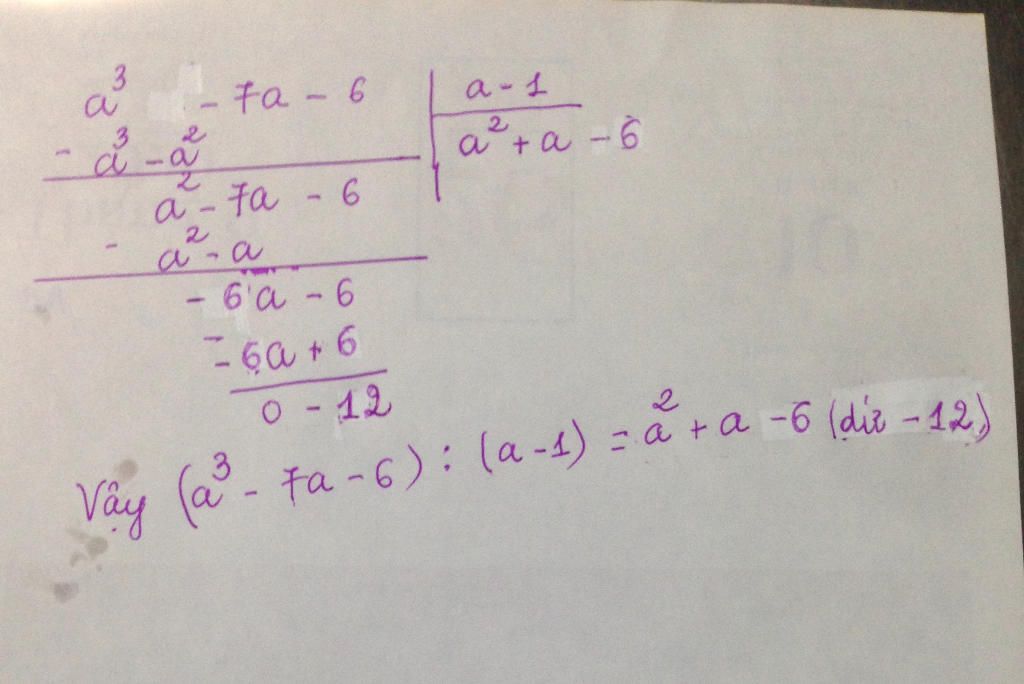 a³ - 7a - 6 | a - 1
- a³ - a² | a² + a - 6
a² - 7a - 6
- a² - a
- 6a - 6
- - 6a + 6
0 - 12
Vậy (a³ - 7a - 6) : (a - 1) = a² + a - 6 (dư - 12)